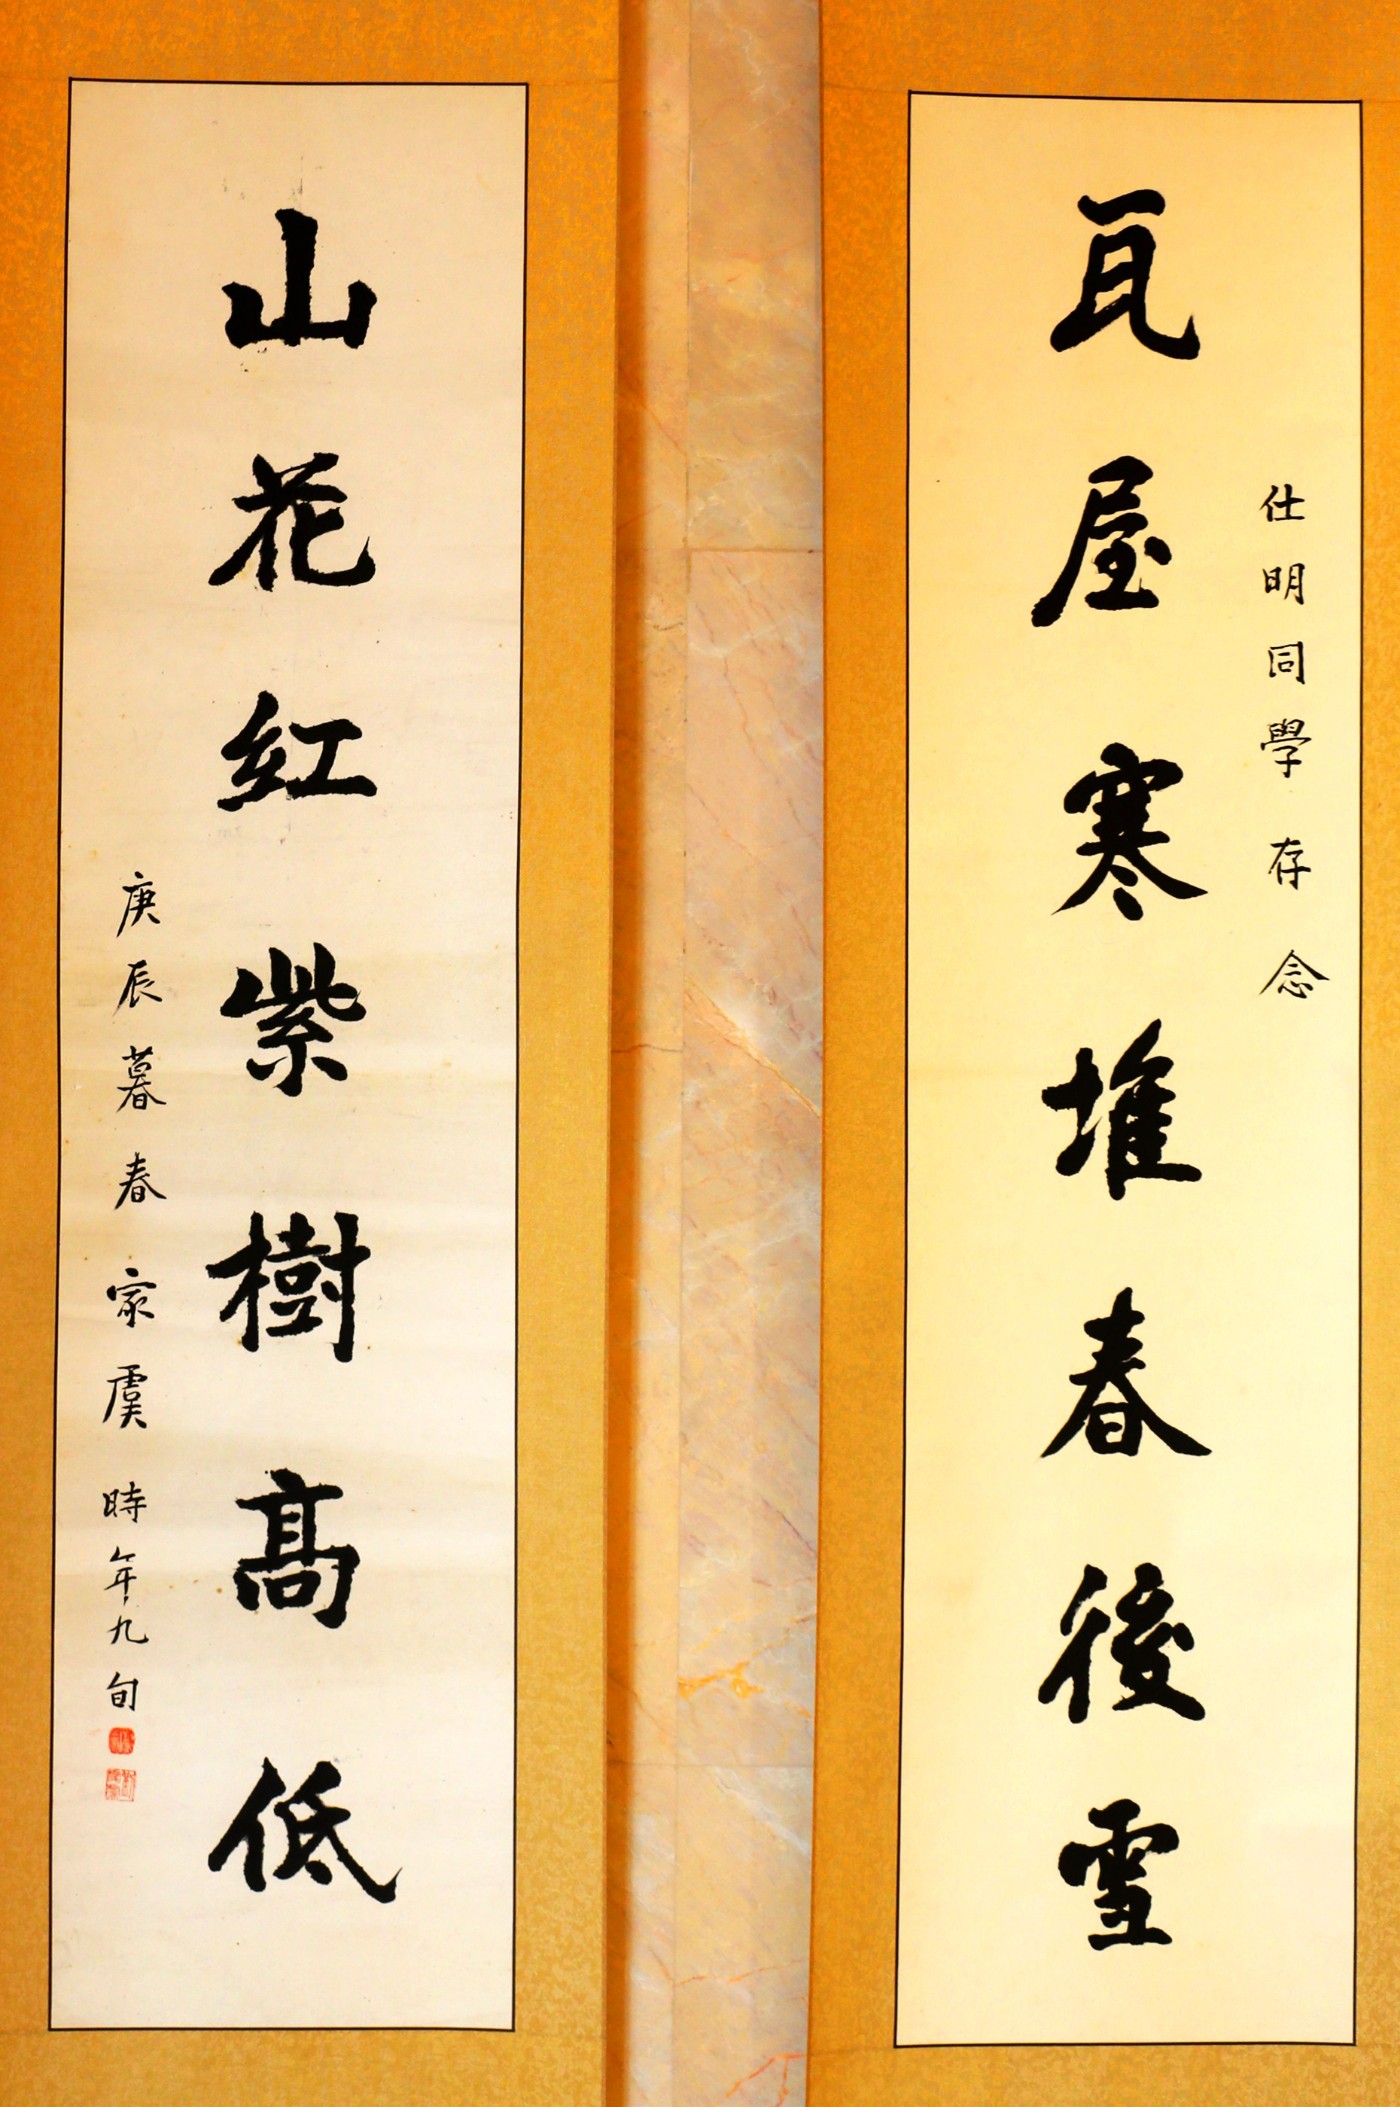 仕明同學存念
瓦屋寒堆春後雪
山花紅紫樹高低
庚辰暮春家虞時年九旬